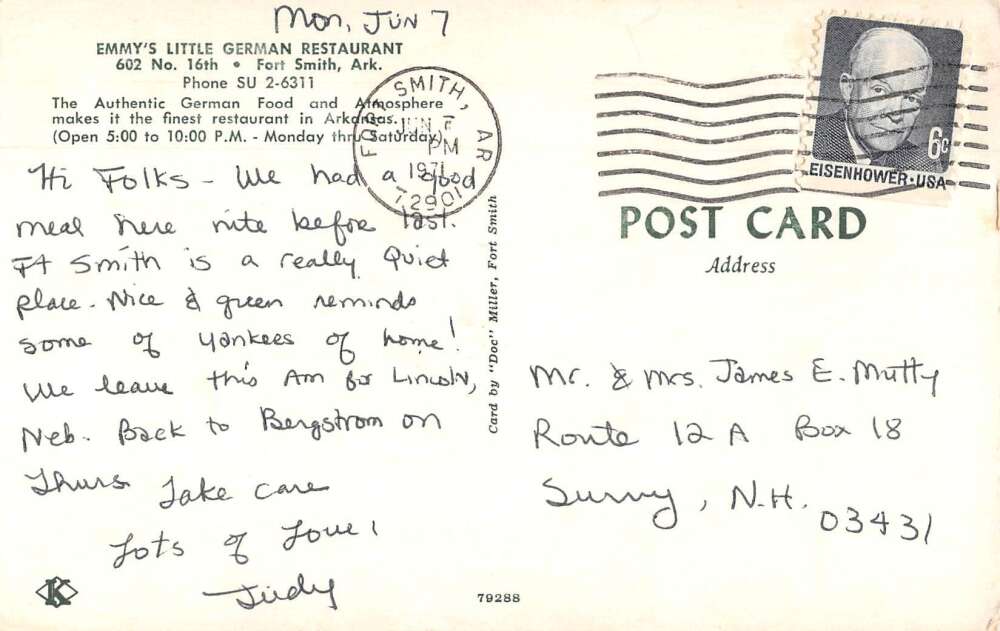 Mon, JUN 7
EMMY'S LITTLE GERMAN RESTAURANT
602 No. 16th • Fort Smith, Ark.
Phone SU 2-6311
The Authentic German Food and Atmosphere
makes it the finest restaurant in Arkansas.
(Open 5:00 to 10:00 P.M. - Monday thru Saturday)
Hi Folks - We had a good
meal here nite before last.
Ft Smith is a really Quiet
place. Nice & green reminds
some of yankees of home!
We leave this Am for Lincoln,
Neb. Back to Bergstrom on
Thurs Take care
Lots of Love!
Judy
K
Card by "Doc" Miller, Fort Smith
79288
FORT SMITH, AR
JUN 7
PM
1971
72901
6c
EISENHOWER·USA
POST CARD
Address
Mr. & Mrs. James E. Mutty
Route 12 A Box 18
Surry, N.H.
03431